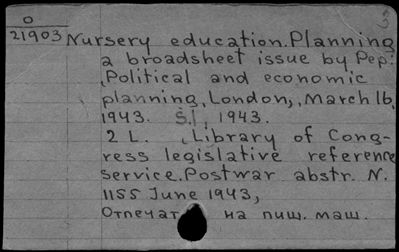 0
21903
3
Nursery education. Planning,
a broadsheet issue by Pep:
Political and economic
planning, London, March 16,
1943. S.l., 1943.
2 L. (Library of Cong-
ress legislative reference
service. Postwar abstr. N.
1155 June 1943,
Отпечат на пиш. маш.